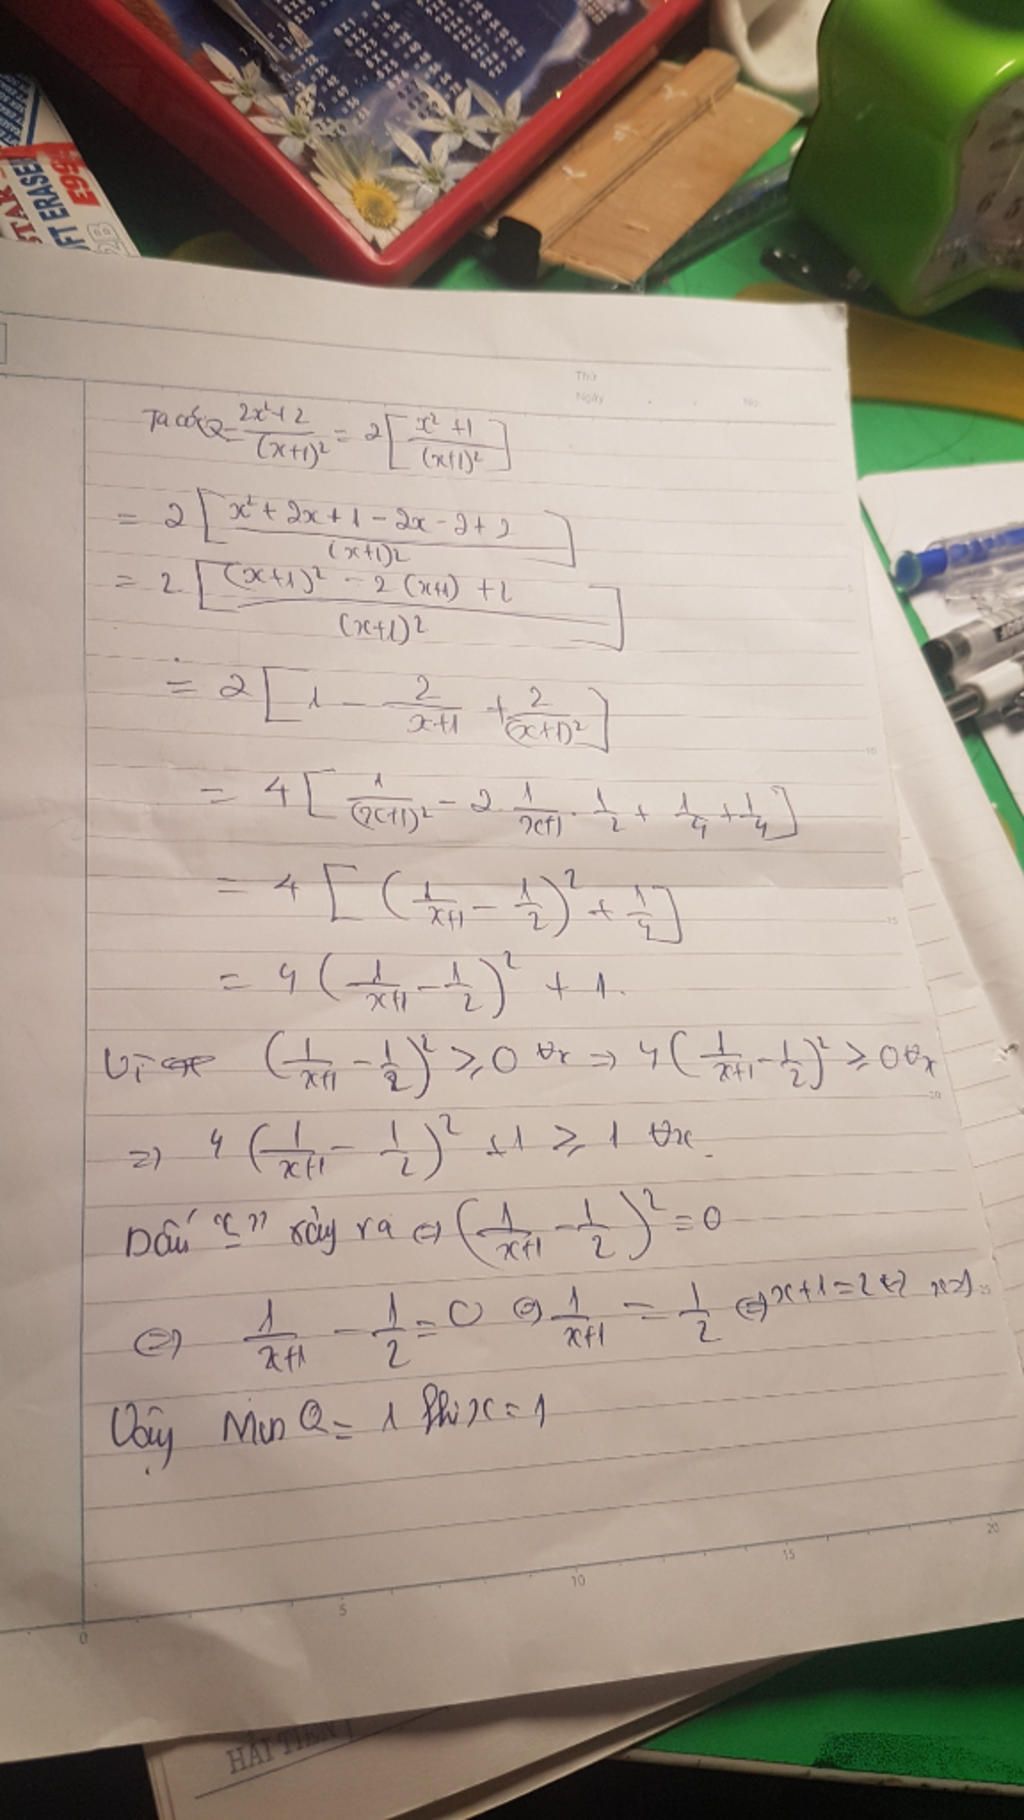 STAR
FT ERASE
E99
2B
Thứ
Ngày . . No.
Ta có: Q = \frac{2x²+2}{(x+1)²} = 2[\frac{x²+1}{(x+1)²}]
= 2[\frac{x²+2x+1-2x-2+2}{(x+1)²}]
= 2[\frac{(x+1)²-2(x+1)+2}{(x+1)²}]
= 2[1 - \frac{2}{x+1} + \frac{2}{(x+1)²}]
= 4[\frac{1}{(x+1)²} - 2.\frac{1}{x+1}.\frac{1}{2} + \frac{1}{4} + \frac{1}{4}]
= 4[(\frac{1}{x+1} - \frac{1}{2})² + \frac{1}{4}]
= 4(\frac{1}{x+1} - \frac{1}{2})² + 1.
Vì (\frac{1}{x+1} - \frac{1}{2})² ≥ 0 ∀x ⇒ 4(\frac{1}{x+1} - \frac{1}{2})² ≥ 0 ∀x
⇒ 4(\frac{1}{x+1} - \frac{1}{2})² + 1 ≥ 1 ∀x.
Dấu "=" xảy ra ⇔ (\frac{1}{x+1} - \frac{1}{2})² = 0
⇔ \frac{1}{x+1} - \frac{1}{2} = 0 ⇔ \frac{1}{x+1} = \frac{1}{2} ⇔ x+1=2 ⇔ x=1.
Vậy Min Q = 1 khi x = 1
0 5 10 15 20
HẢI TIẾN